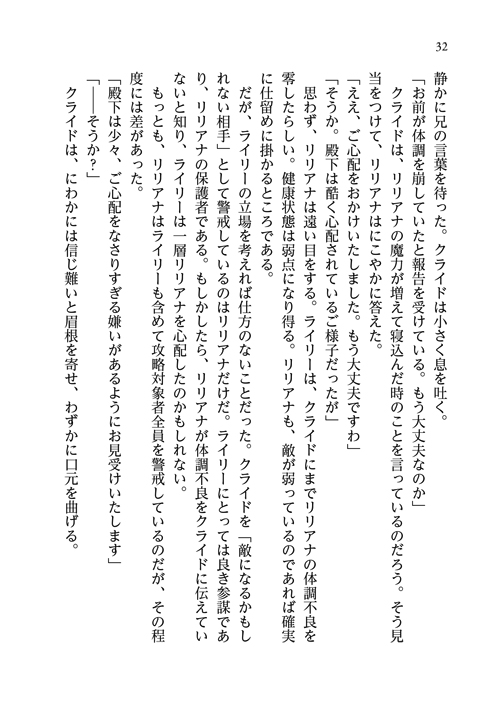 32
静かに兄の言葉を待った。クライドは小さく息を吐く。
「お前が体調を崩していたと報告を受けている。もう大丈夫なのか」
クライドは、リリアナの魔力が増えて寝込んだ時のことを言っているのだろう。そう見
当をつけて、リリアナはにこやかに答えた。
「ええ、ご心配をおかけいたしました。もう大丈夫ですわ」
「そうか。殿下は酷く心配されているご様子だったが」
思わず、リリアナは遠い目をする。ライリーは、クライドにまでリリアナの体調不良を
零したらしい。健康状態は弱点になり得る。リリアナも、敵が弱っているのであれば確実
に仕留めに掛かるところである。
だが、ライリーの立場を考えれば仕方のないことだった。クライドを「敵になるかもし
れない相手」として警戒しているのはリリアナだけだ。ライリーにとっては良き参謀であ
り、リリアナの保護者である。もしかしたら、リリアナが体調不良をクライドに伝えてい
ないと知り、ライリーは一層リリアナを心配したのかもしれない。
もっとも、リリアナはライリーも含めて攻略対象者全員を警戒しているのだが、その程
度には差があった。
「殿下は少々、ご心配をなさりすぎる嫌いがあるようにお見受けいたします」
「――そうか？」
クライドは、にわかには信じ難いと眉根を寄せ、わずかに口元を曲げる。